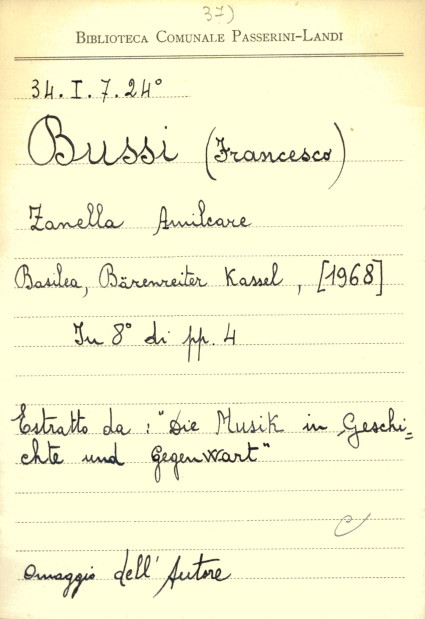 37)
BIBLIOTECA COMUNALE PASSERINI-LANDI
34. I. 7. 24°
Bussi (Francesco)
Zanella Amilcare
Basilea, Bärenreiter Kassel, [1968]
In 8° di pp. 4
Estratto da: "Die Musik in Geschi=
chte und Gegenwart"
C
omaggio dell'Autore